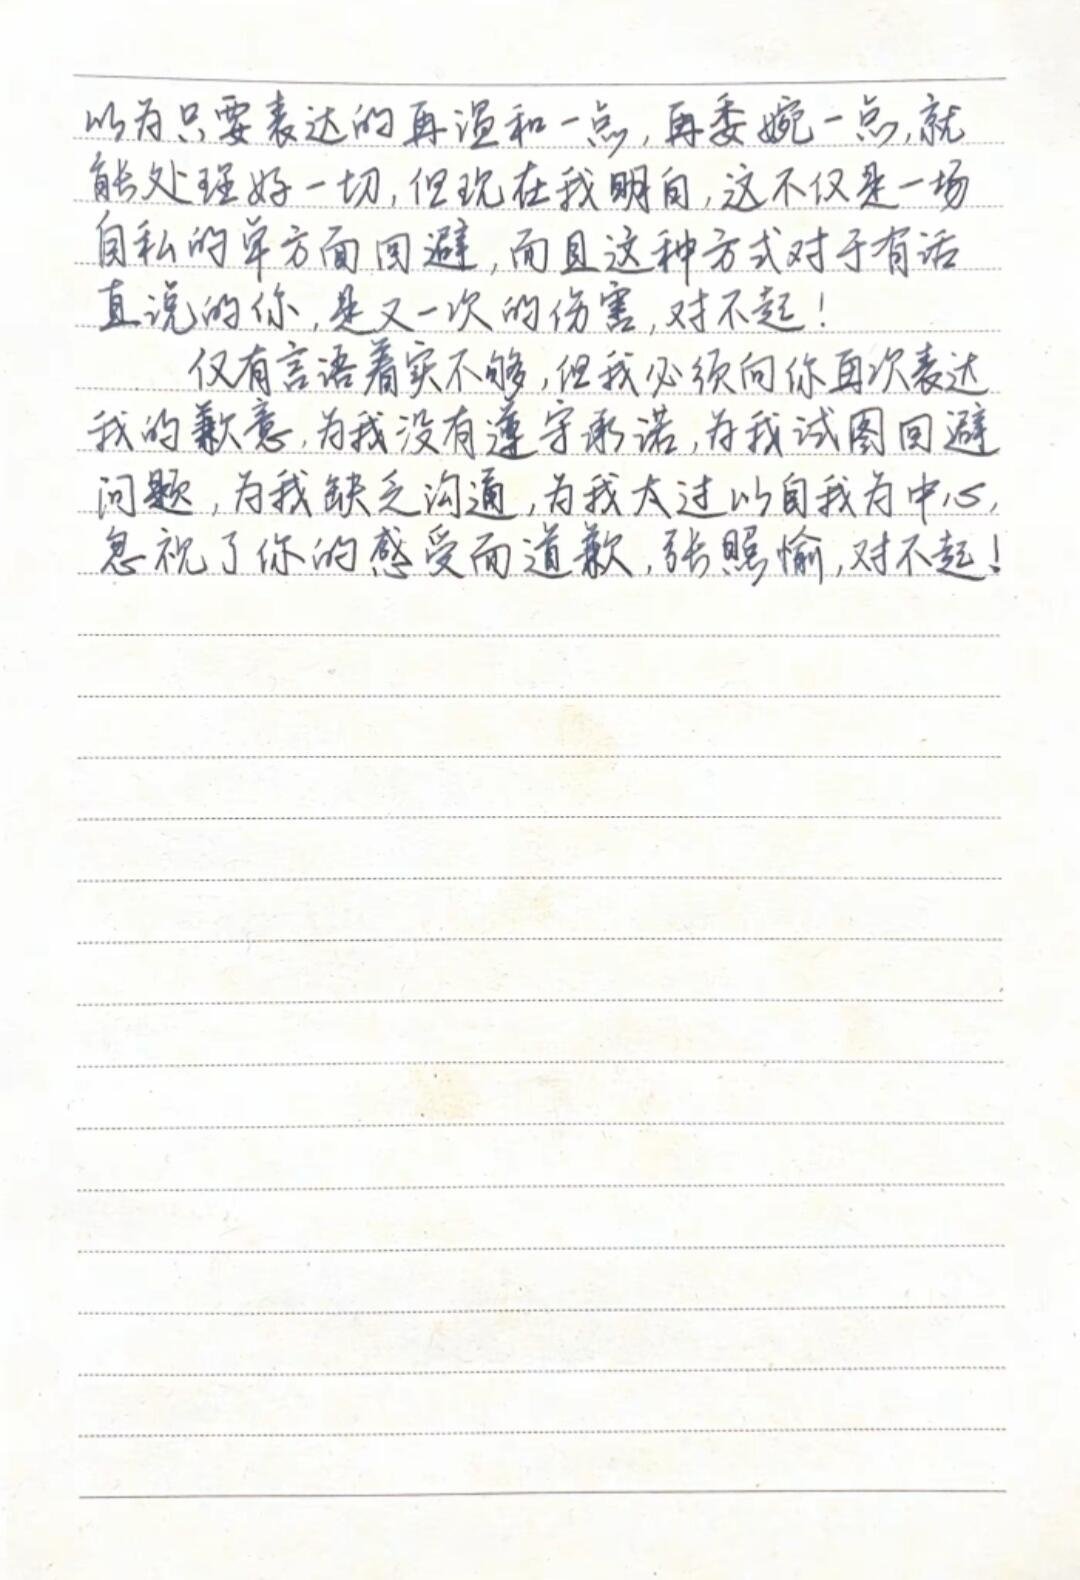 以为只要表达的再温和一点，再委婉一点，就
能处理好一切，但现在我明白，这不仅是一场
自私的单方面回避，而且这种方式对于有话
直说的你，是又一次的伤害，对不起！
仅有言语着实不够，但我必须向你再次表达
我的歉意，为我没有遵守承诺，为我试图回避
问题，为我缺乏沟通，为我太过以自我为中心，
忽视了你的感受而道歉，张照愉，对不起！